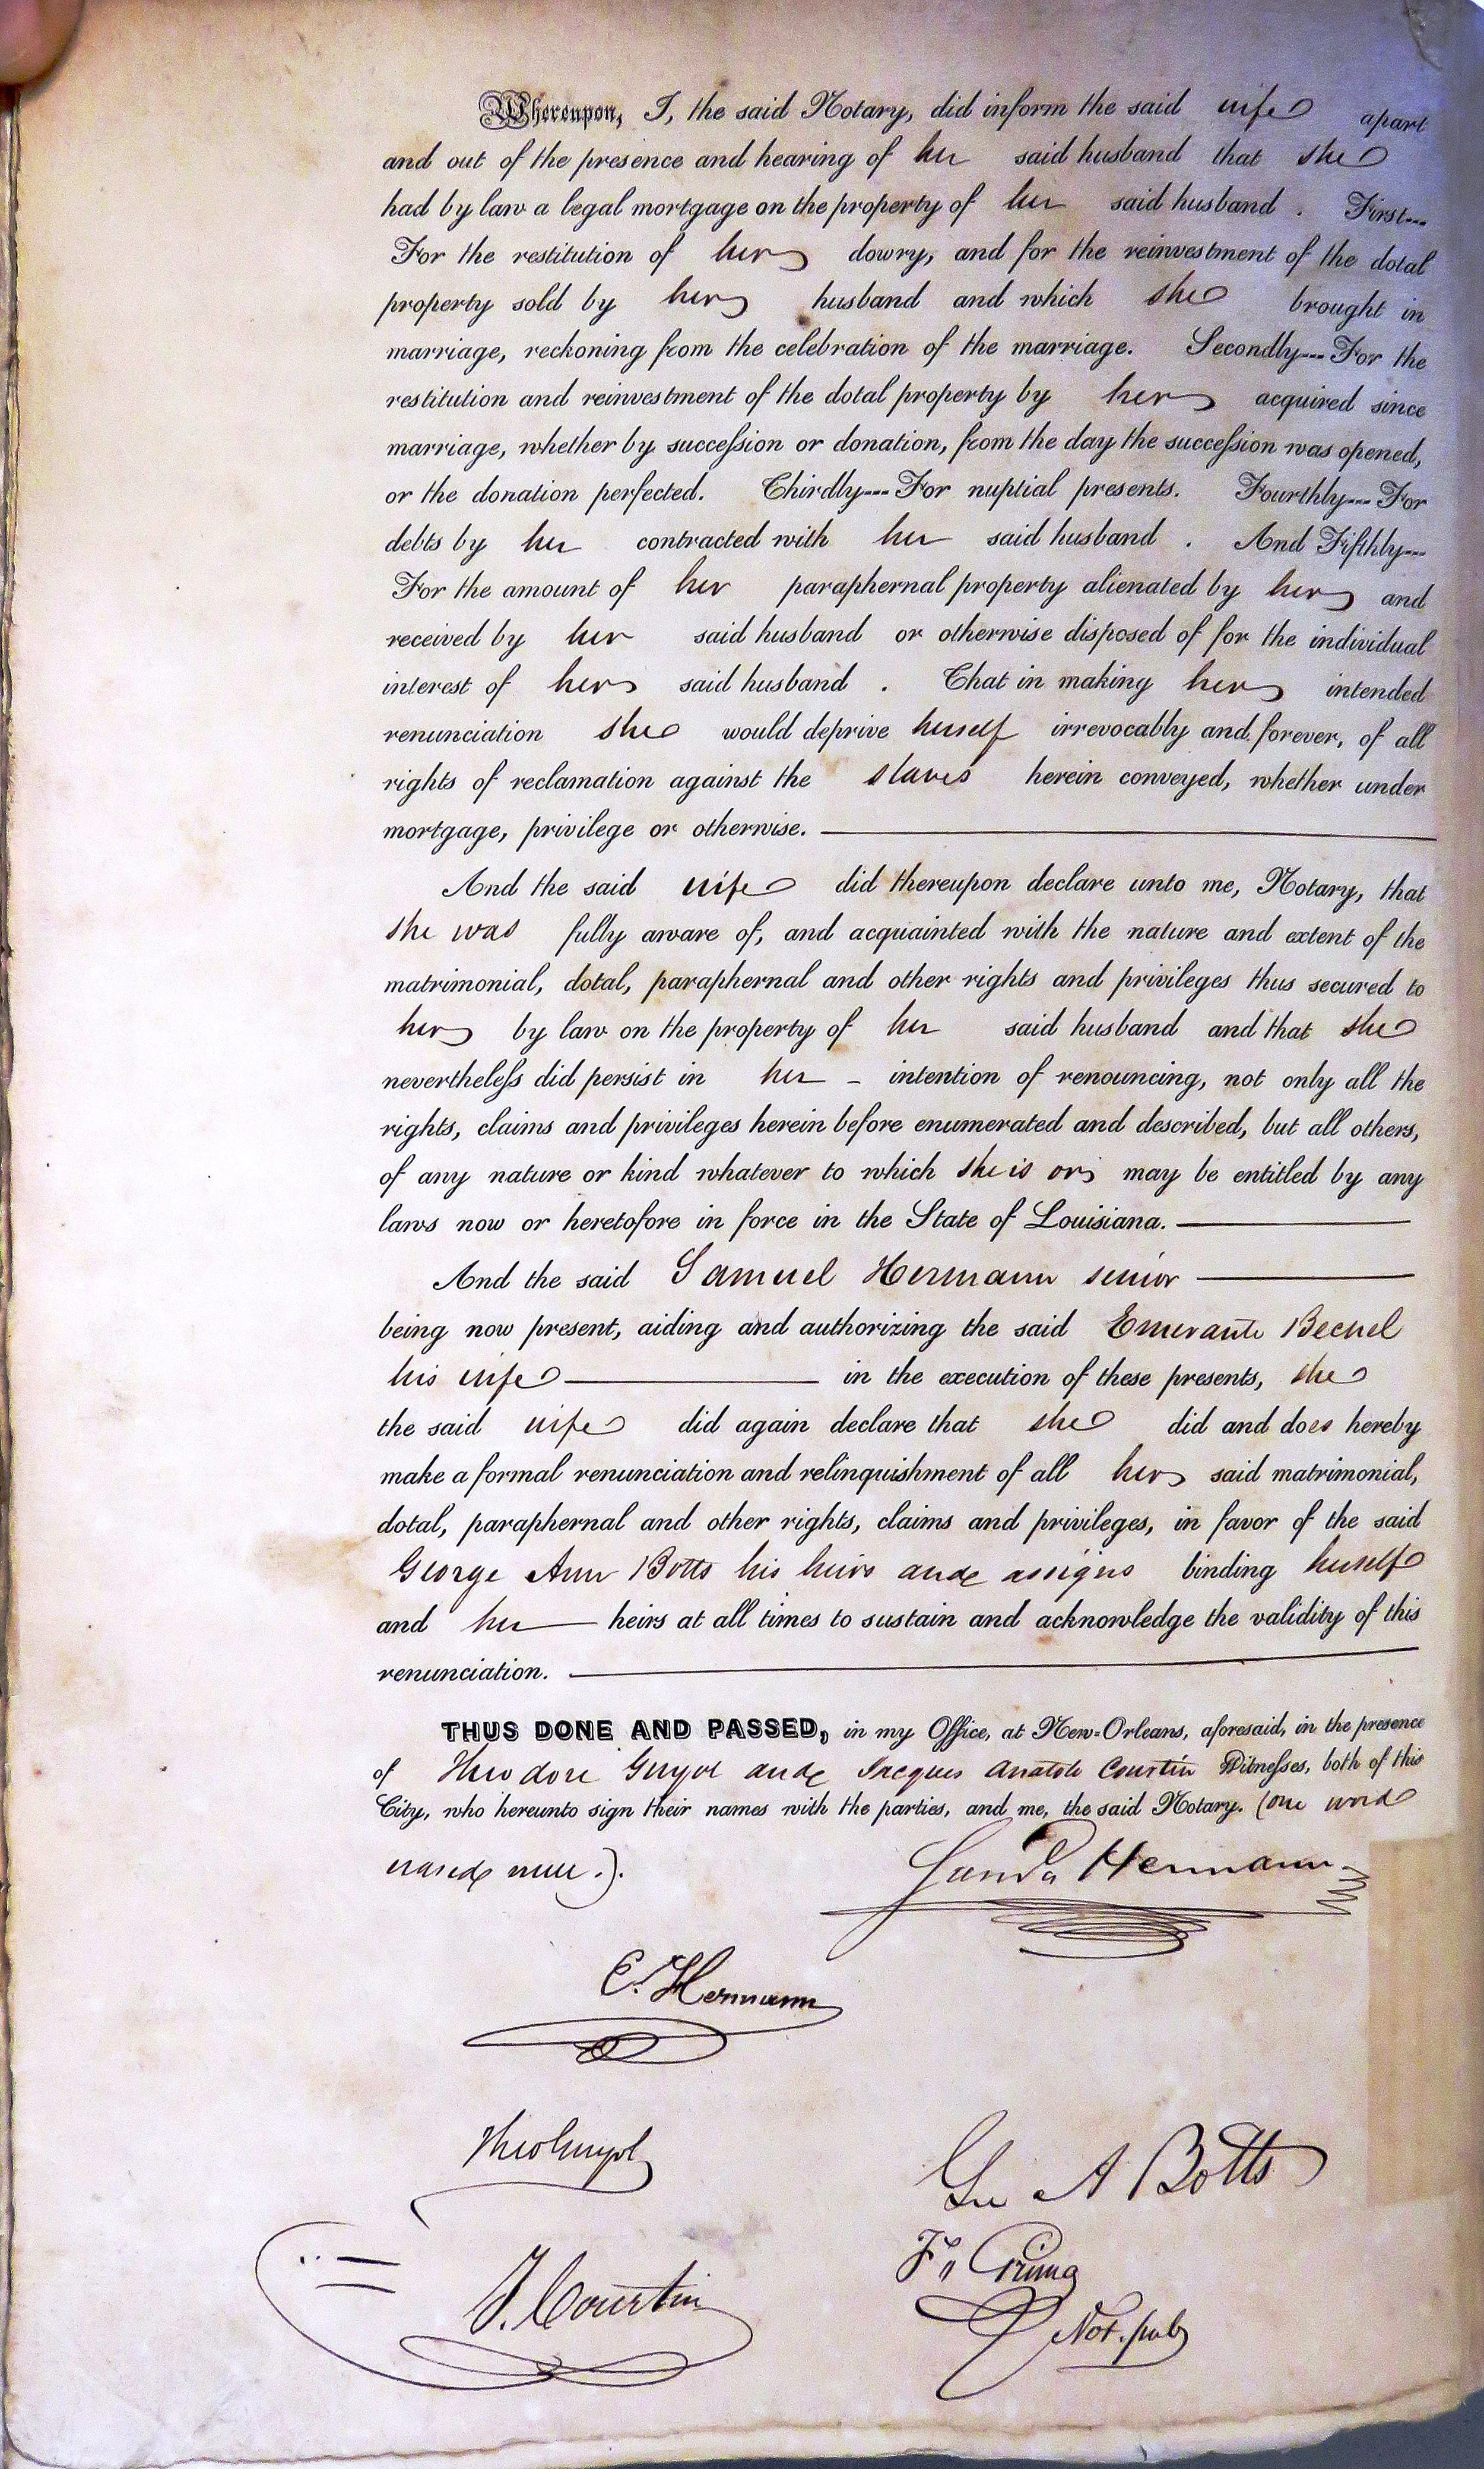 Whereupon, I, the said Notary, did inform the said wife apart
and out of the presence and hearing of her said husband that she
had by law a legal mortgage on the property of her said husband . First---
For the restitution of her dowry, and for the reinvestment of the dotal
property sold by her husband and which she brought in
marriage, reckoning from the celebration of the marriage. Secondly---For the
restitution and reinvestment of the dotal property by her acquired since
marriage, whether by succession or donation, from the day the succession was opened,
or the donation perfected. Thirdly---For nuptial presents. Fourthly---For
debts by her contracted with her said husband . And Fifthly---
For the amount of her paraphernal property alienated by her and
received by her said husband or otherwise disposed of for the individual
interest of her said husband . That in making her intended
renunciation she would deprive herself irrevocably and forever, of all
rights of reclamation against the slaves herein conveyed, whether under
mortgage, privilege or otherwise.
And the said wife did thereupon declare unto me, Notary, that
she was fully aware of, and acquainted with the nature and extent of the
matrimonial, dotal, paraphernal and other rights and privileges thus secured to
her by law on the property of her said husband and that she
nevertheless did persist in her - intention of renouncing, not only all the
rights, claims and privileges herein before enumerated and described, but all others,
of any nature or kind whatever to which she is or may be entitled by any
laws now or heretofore in force in the State of Louisiana.
And the said Samuel Hermann senior
being now present, aiding and authorizing the said Emerante Becnel
his wife in the execution of these presents, she
the said wife did again declare that she did and does hereby
make a formal renunciation and relinquishment of all her said matrimonial,
dotal, paraphernal and other rights, claims and privileges, in favor of the said
George Ann Botts his heirs and assigns binding herself
and her heirs at all times to sustain and acknowledge the validity of this
renunciation.
THUS DONE AND PASSED, in my Office, at New-Orleans, aforesaid, in the presence
of Theodore Guyol and Jacques Anatole Courtin Witnesses, both of this
City, who hereunto sign their names with the parties, and me, the said Notary. (one word
erased null.).
Hermann
E. Hermann
Theo Guyol
Geo A Botts
J. Courtin
Not. pub